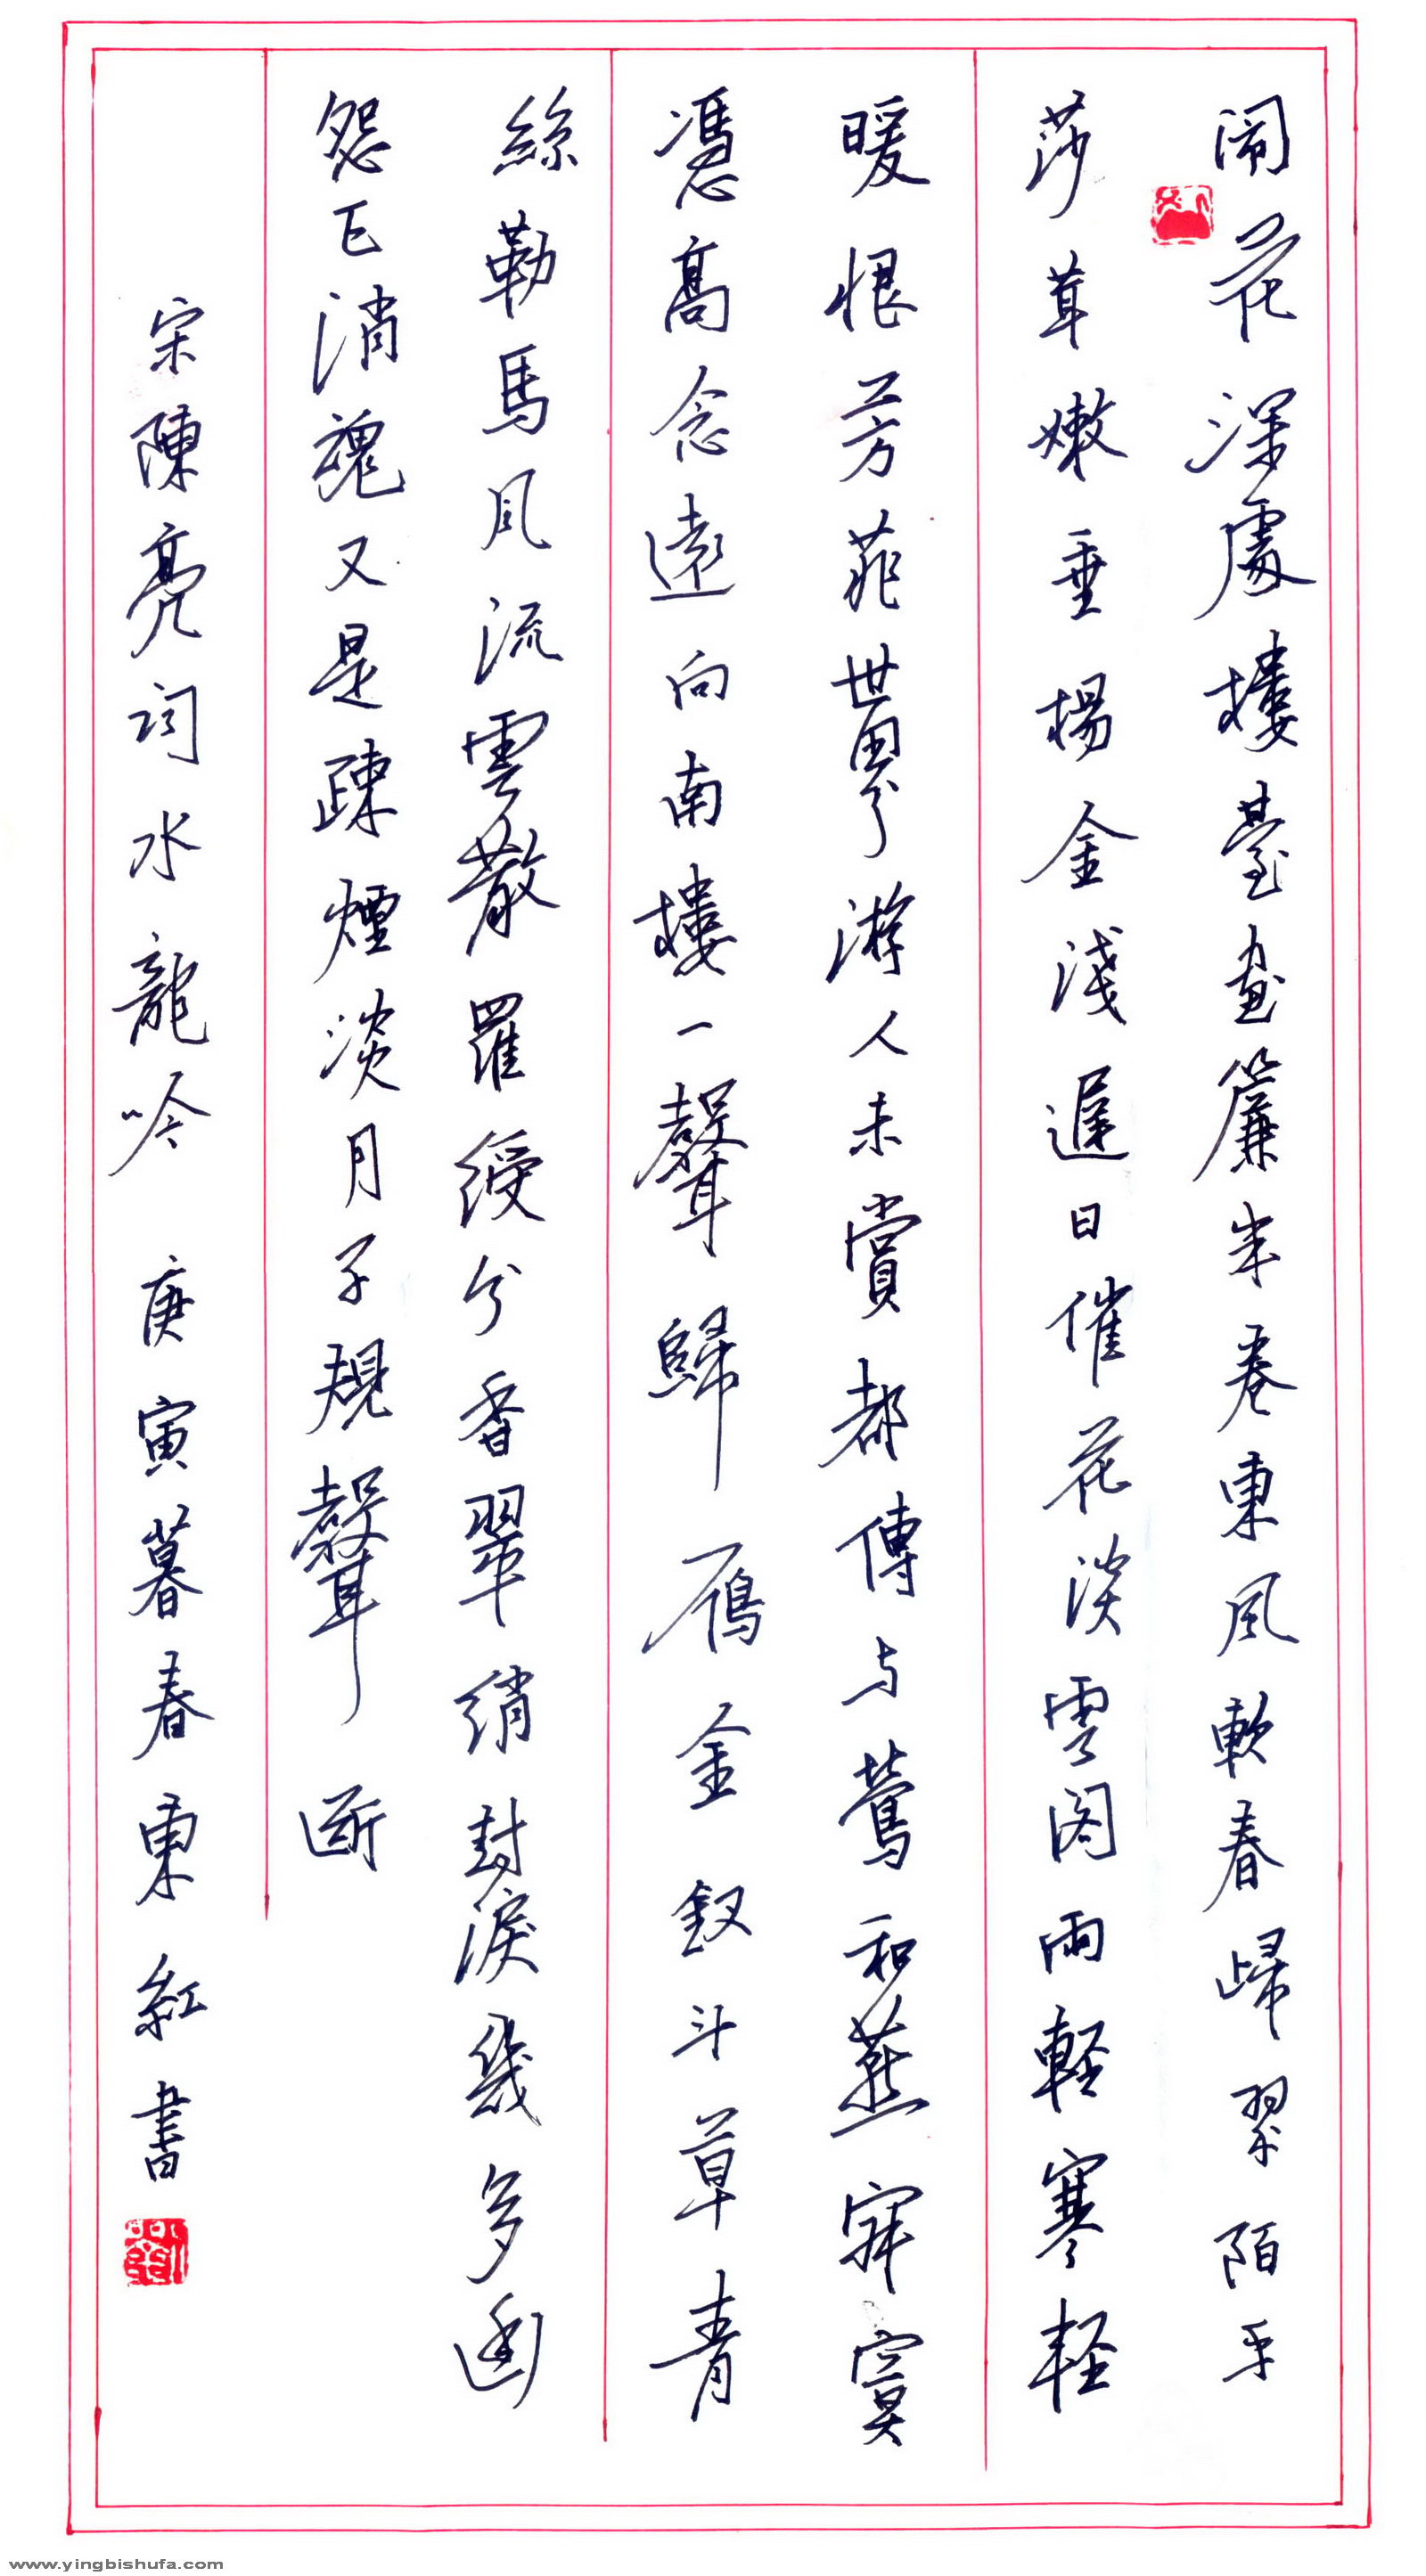 闹花深處樓臺畫簾半卷東風軟春歸翠陌平
莎茸嫩垂楊金淺遲日催花淡雲阁雨輕寒輕
暖恨芳菲世界游人未賞都傳与鶯和燕寂寞
憑高念遠向南樓一聲歸鴈金釵斗草青
絲勒馬風流雲散羅綬分香翠綃封淚幾多幽
怨正消魂又是疎煙淡月子規聲断
宋陳亮词水龍吟 庚寅暮春東紅書
www.yingbishufa.com